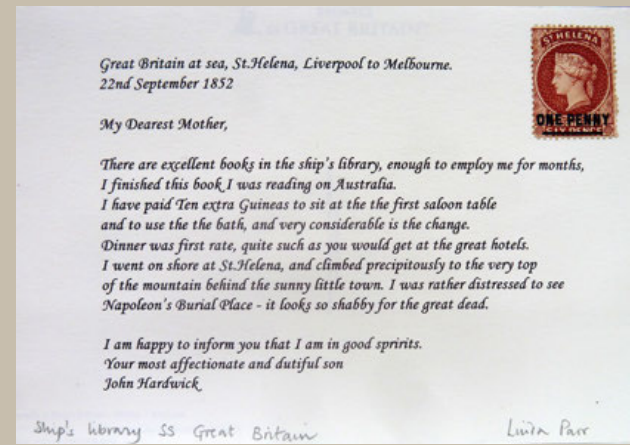 Great Britain at sea, St.Helena, Liverpool to Melbourne.
22nd September 1852
ST HELENA
ONE PENNY
SIX PENCE
My Dearest Mother,
There are excellent books in the ship's library, enough to employ me for months,
I finished this book I was reading on Australia.
I have paid Ten extra Guineas to sit at the the first saloon table
and to use the the bath, and very considerable is the change.
Dinner was first rate, quite such as you would get at the great hotels.
I went on shore at St.Helena, and climbed precipitously to the very top
of the mountain behind the sunny little town. I was rather distressed to see
Napoleon's Burial Place - it looks so shabby for the great dead.
I am happy to inform you that I am in good spririts.
Your most affectionate and dutiful son
John Hardwick
Ship's library SS Great Britain
Linda Parr